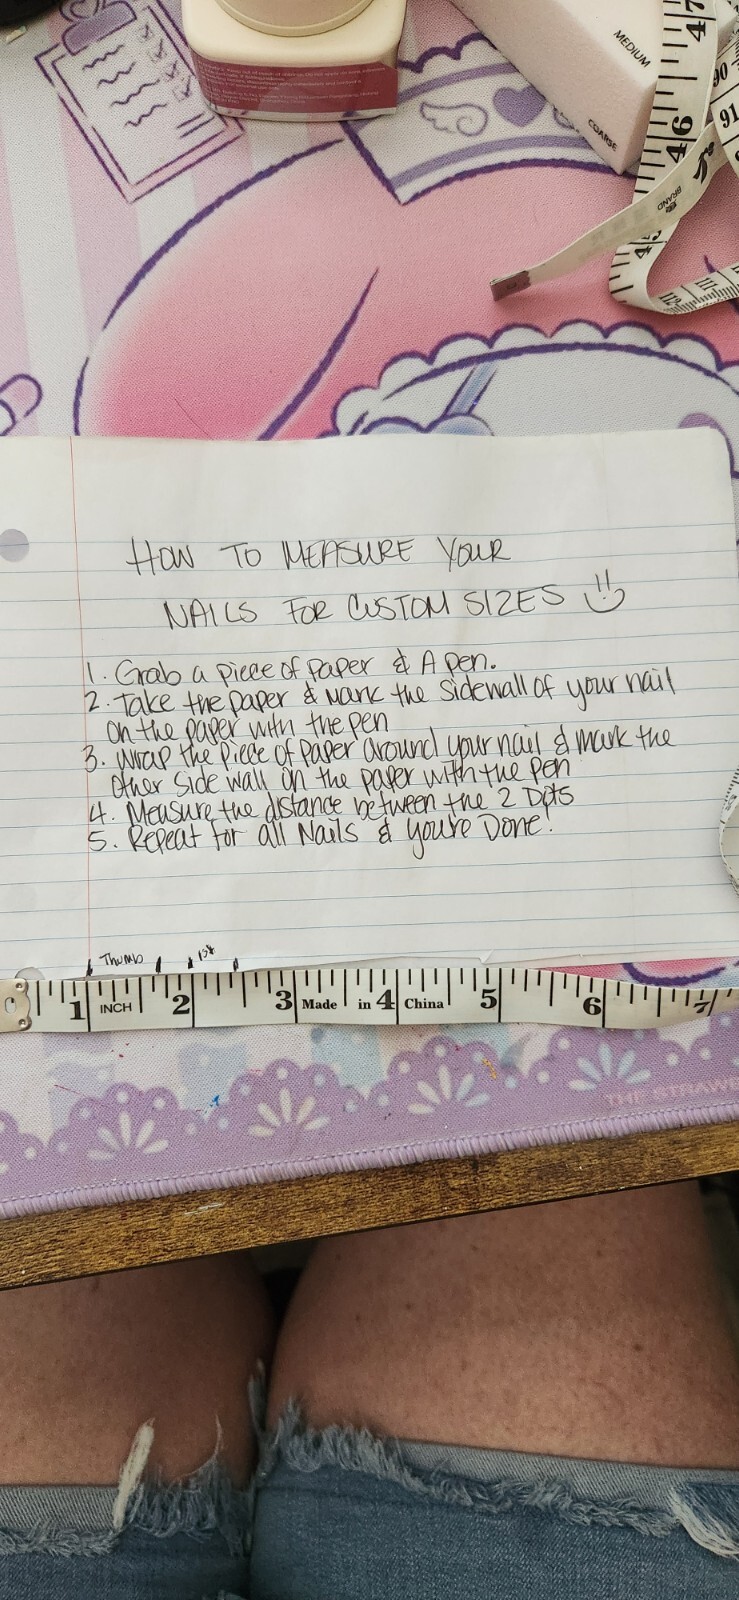 MEDIUM
COARSE
47
46
45
90
91
BRAND
112
111
HOW TO MEASURE YOUR
NAILS FOR CUSTOM SIZES
1. Grab a piece of paper & A pen.
2. Take the paper & Mark the sidewall of your nail
on the paper with the pen
3. Wrap the piece of paper around your nail & mark the
other side wall on the paper with the pen
4. Measure the distance between the 2 Dots
5. Repeat for all Nails & you're Done!
Thumb 1st
1 INCH 2 3 Made in 4 China 5 6 7
THE STRAWBE